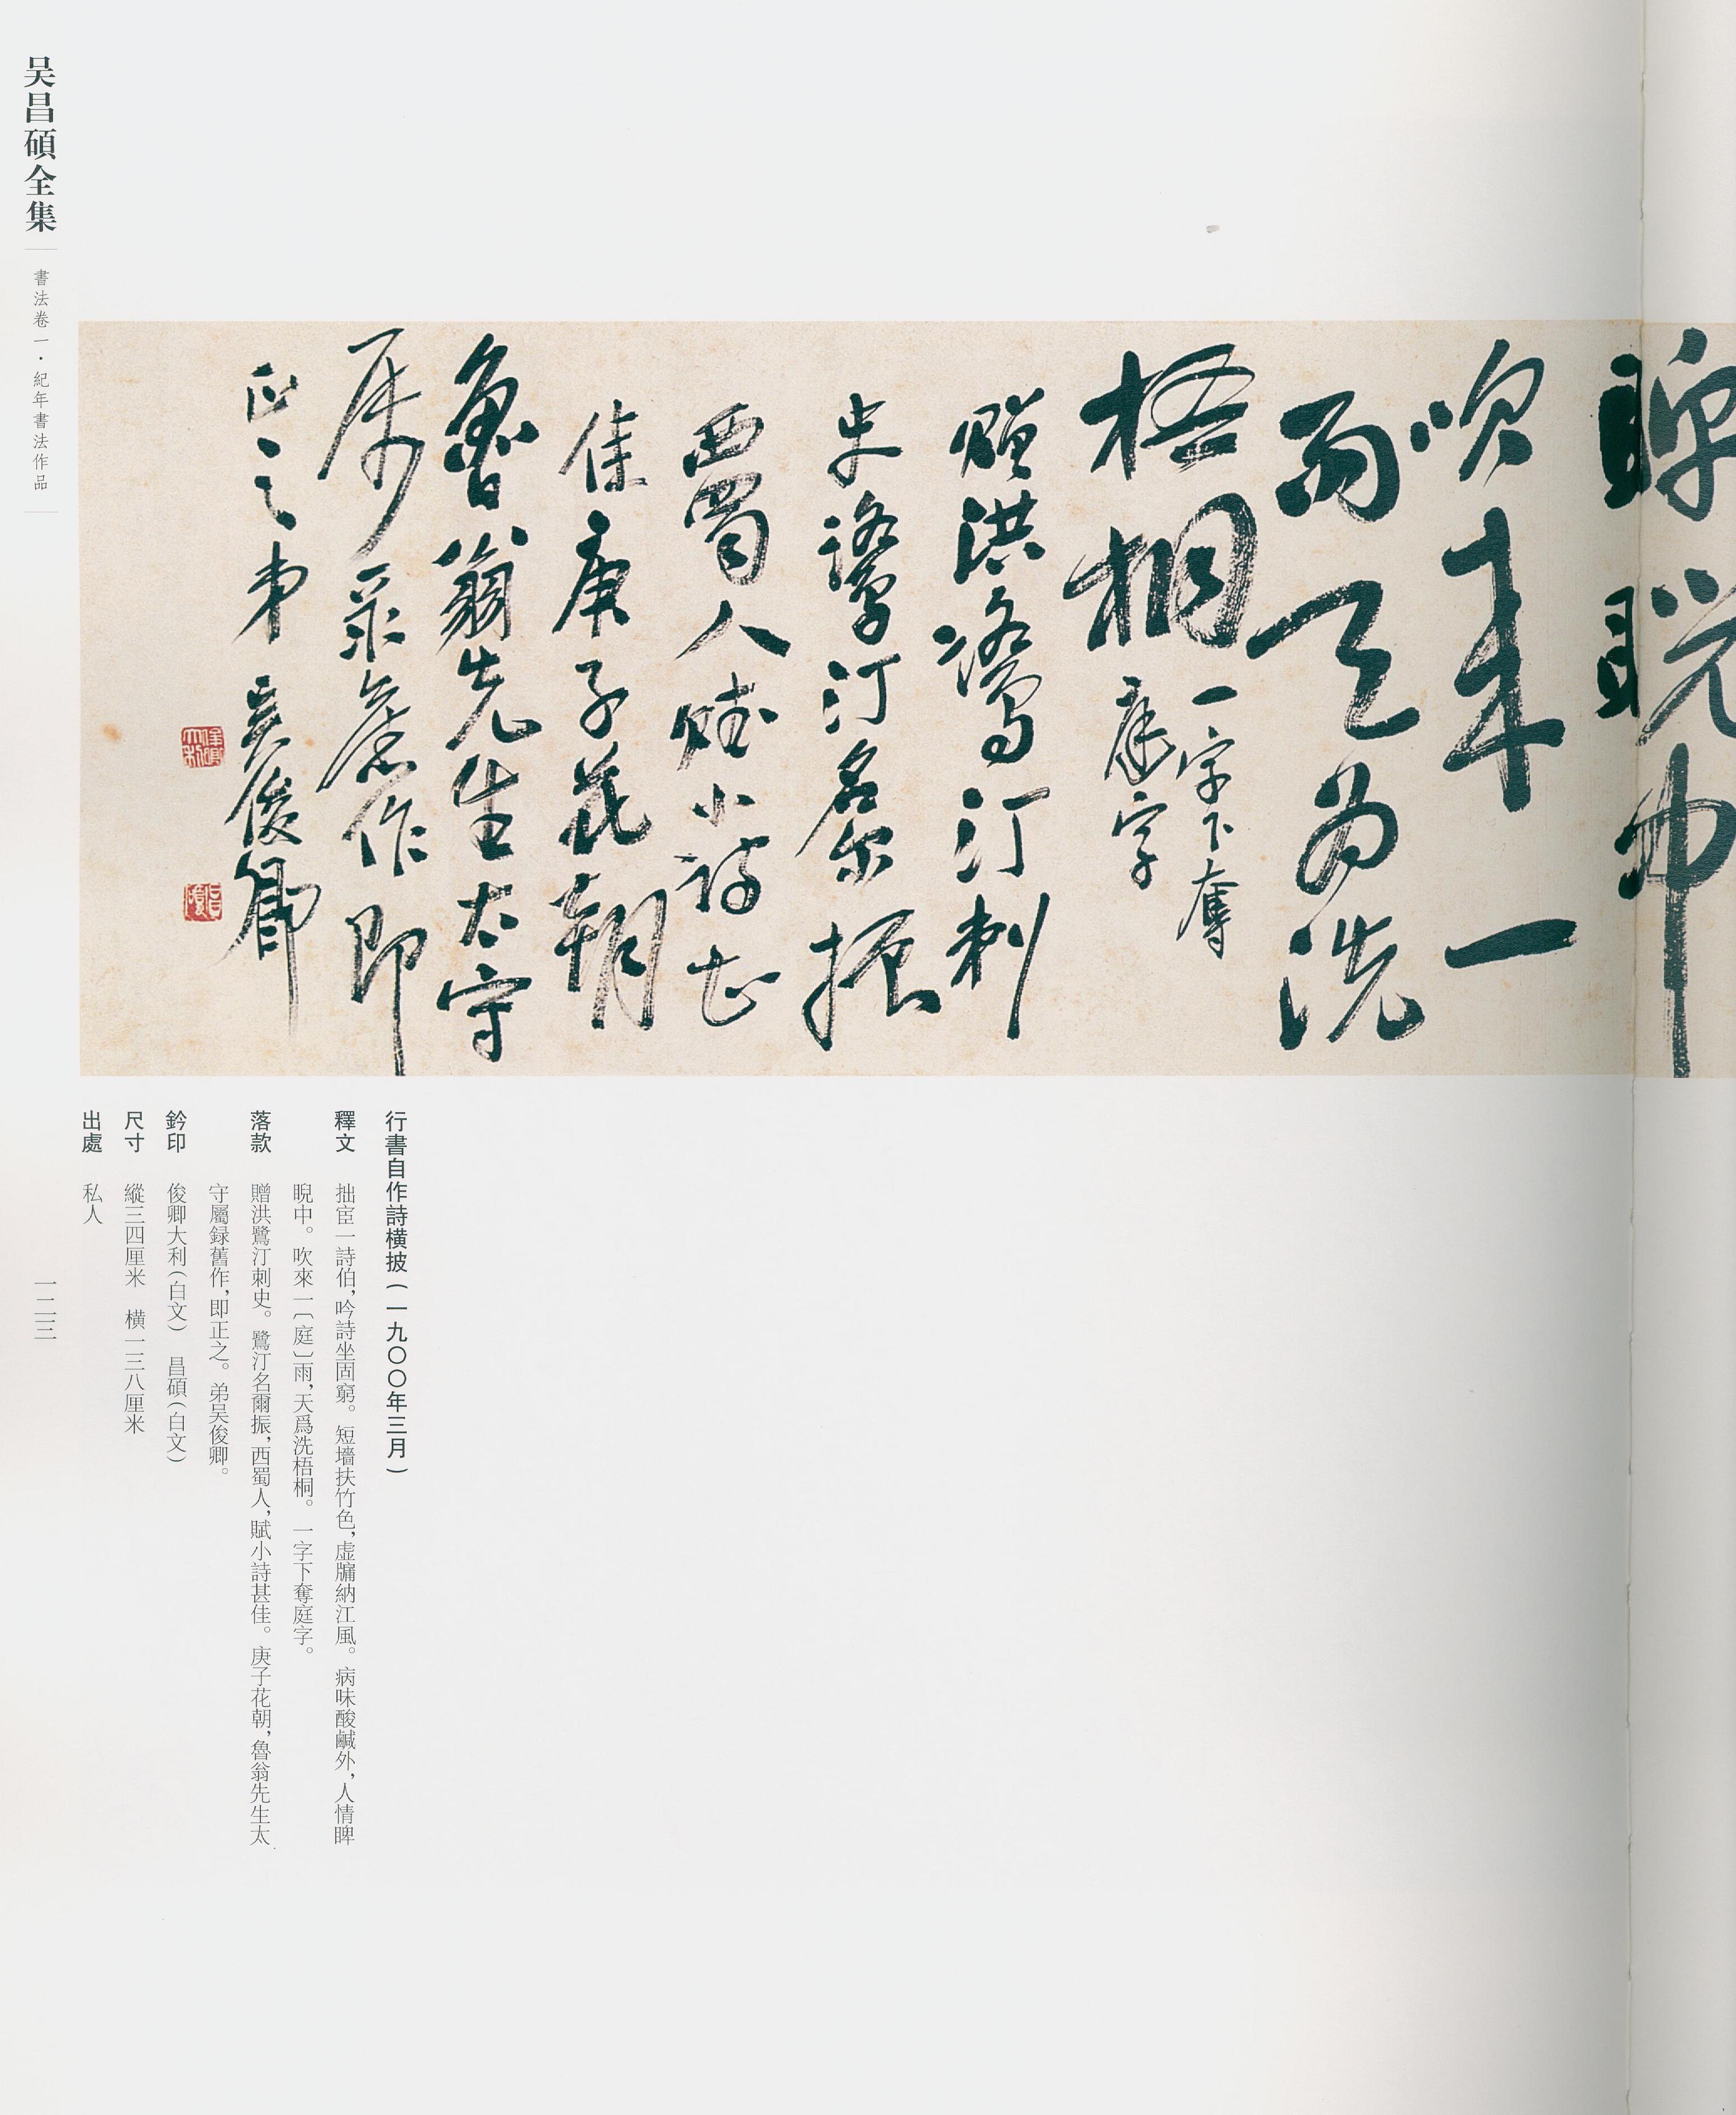 睥睨中
吹来一
雨天為洗
梧桐一字下奪
庭字
贈洪鷺汀刺
史鷺汀名尔振
西蜀人賦小詩甚
佳庚子花朝
魯翁先生太守
属录舊作即
正之弟吳俊卿
俊卿大利
昌碩
行書自作詩橫披(一九〇〇年三月)
釋文 拙宦一詩伯,吟詩坐固窮。短墻扶竹色,虛牖納江風。病味酸鹹外,人情睥
睨中。吹來一〔庭〕雨,天爲洗梧桐。一字下奪庭字。
落款 贈洪鷺汀刺史。鷺汀名爾振,西蜀人,賦小詩甚佳。庚子花朝,魯翁先生太
守屬録舊作,即正之。弟吴俊卿。
鈐印 俊卿大利(白文) 昌碩(白文)
尺寸 縱三四厘米 橫一三八厘米
出處 私人
吴昌碩全集
書法卷一·紀年書法作品
一二三